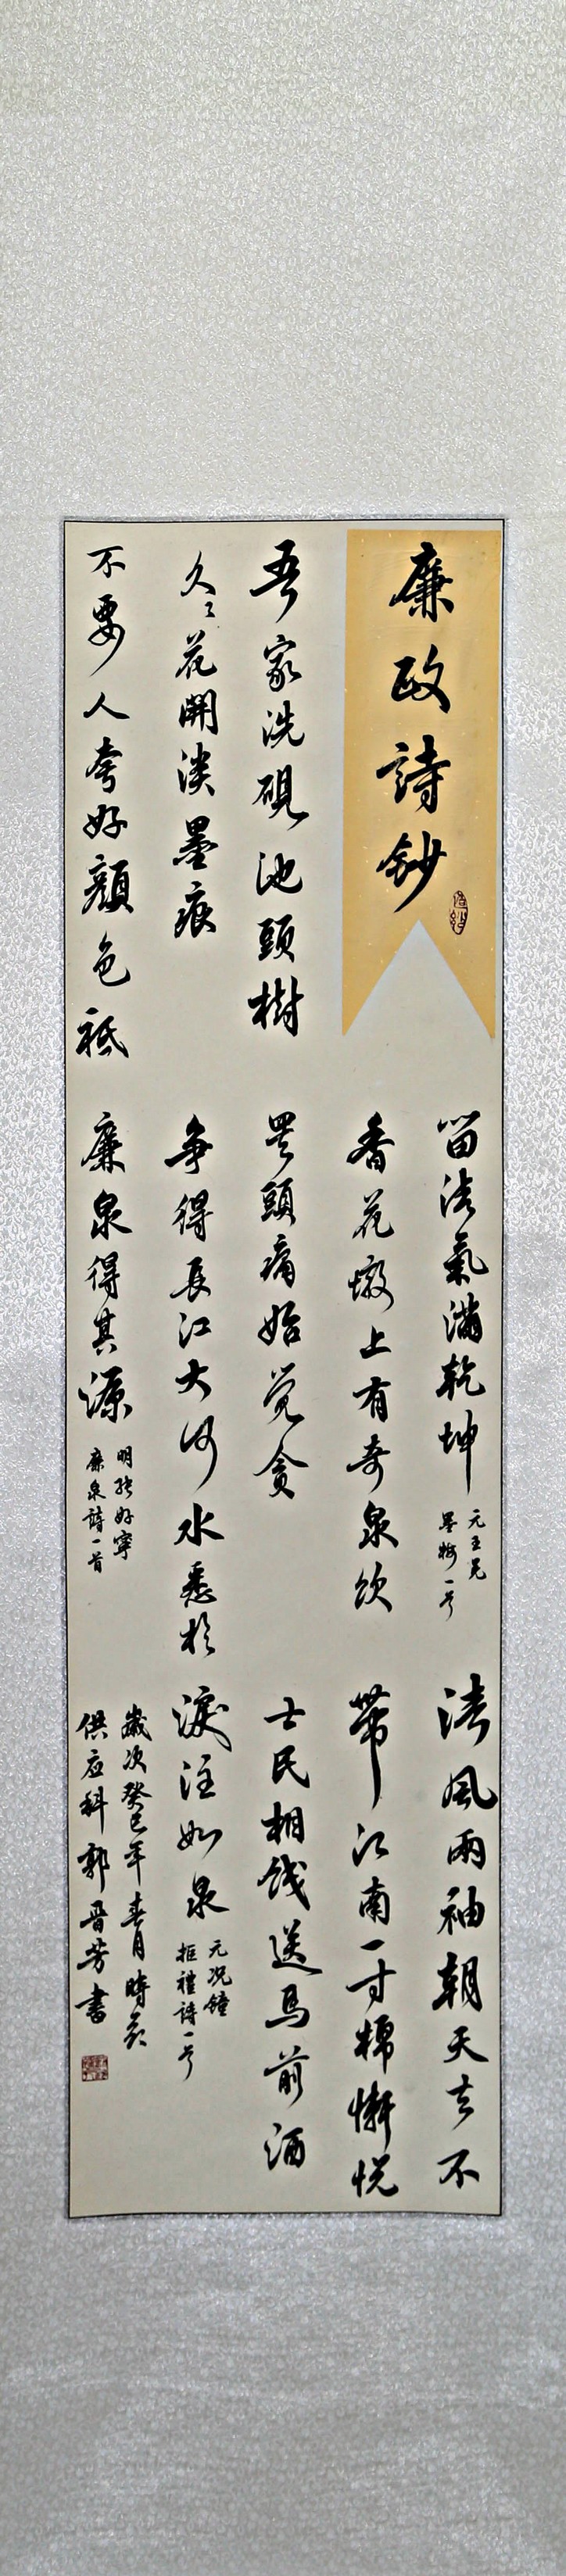 廉政詩鈔
吾家洗硯池頭樹
久々花開淡墨痕
不要人夸好顏色祗
留清氣滿乾坤
元王冕
墨梅一首
香花墩上有奇泉飲
罢頭痛始觉贪
争得長江大河水悉於
廉泉得其源
明张好寧
廉泉詩一首
清風兩袖朝天去不
帶江南一寸棉慚悦
士民相餞送馬前酒
淚注如泉
元况鐘
拒禮詩一首
歲次癸巳年春月時
供应科郭晋芳書